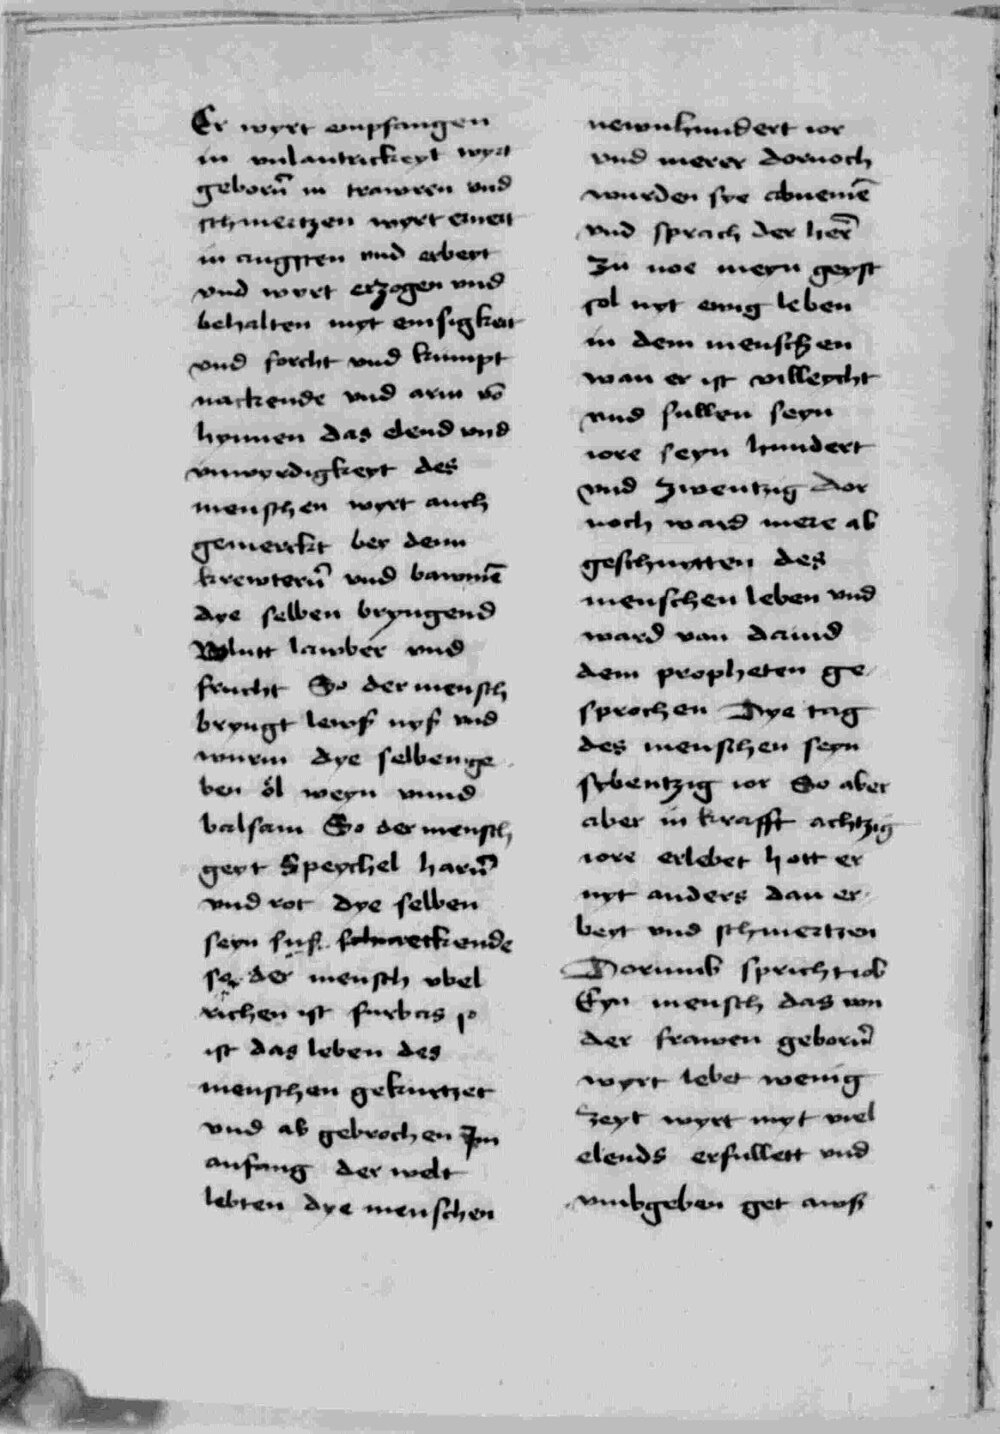 Er wyrt empfangen
in vnlautrickeyt wyrt
geborn̄ in trawren vnd
schmertzen wyrt ernert
in angsten vnd erbeyt
vnd wyrt erzogen vnd
behalten myt emsigkeit
vnd forcht vnd kumpt
nackende vnd arm vō
hynnen das elend vnd
vnwyrdigkeyt des
menschen wyrt auch
gemerckt bey denn
krewtern̄ vnd bawmē
dye selben bryngend
Blutt lawber vnd
frucht So der mensch
bryngt lewß nyß vnd
wurm dye selben ge
ben öl weyn vnnd
balsam So der mensch
geyt Speychel harn̄
vnd kot dye selben
seyn suß schmeckende
so der mensch vbel
richen ist furbas so
ist das leben des
menschen gekurtzet
vnd ab gebrochen Im
anfang der welt
lebten dye menschen
newnhundert ior
vnd merer dornoch
wurden sye abnemē
vnd sprach der her̄
Zu noe meyn geyst
sol nyt ewig leben
in dem menschen
wan er ist villeycht
vnd sullen seyn
iore seyn hundert
vnd Zwentzig dor
noch ward mere ab
geschnytten des
menschen leben vnd
ward van dauid
dem propheten ge
sprochen Dye tag
des menschen seyn
sybentzig ior So aber
aber in krafft achtzig
iore erlebet hott er
nyt anders dan er
beyt vnd schmertzen
Dorumb spricht iob
Eyn mensch das von
der frawen geborn̄
wyrt lebet wenig
Zeyt wyrt myt viel
elends erfullett vnd
vmbgeben get awß